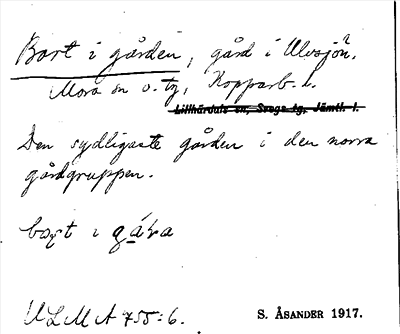 Bort i gården, gård i Ulvsjön.
Mora sn o. tg, Kopparb. l.
Lillhärdals sn, Svegs tg, Jämtl. l.
Den sydligaste gården i den norra
gårdgruppen.
bort i gá̱ra
ULMA 455:6. S. ÅSANDER 1917.